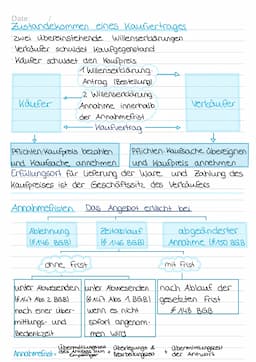 Date
Zustandekommen eines Kaufvertrages
zwei übereinstimmende Willenserklärungen
Verkäufer schuldet Kaufgegenstand
Käufer schuldet den Kaufpreis
1 Willenserklärung
Antrag (Bestellung)
Käufer
2 Willenserklärung
Annahme innerhalb
der Annahmefrist
Verkäufer
Kaufvertrag
Pflichten: Kaufpreis bezahlen
und Kaufsache annehmen
Pflichten: Kaufsache übereignen
und Kaufpreis annehmen
Erfüllungsort für Lieferung der Ware und Zahlung des
Kaufpreises ist der Geschäftssitz des Verkäufers
Annahmefristen Das Angebot erlischt bei
Ablehnung
(§ 146 BGB)
Zeitablauf
(§ 146 BGB)
abgeänderter
Annahme (§ 150 BGB)
ohne Frist
mit Frist
unter Anwesenden
(§ 147 Abs 2 BGB)
nach einer über-
mittlungs- und
Bedenkzeit
unter Abwesenden
(§ 147 Abs 1 BGB)
wenn es nicht
sofort angenom-
men wird
nach Ablauf der
gesetzten Frist
§ 148 BGB
Annahmefrist = + Überlegungs- & + Übermittlungszeit
Bearbeitungszeit der Antwort